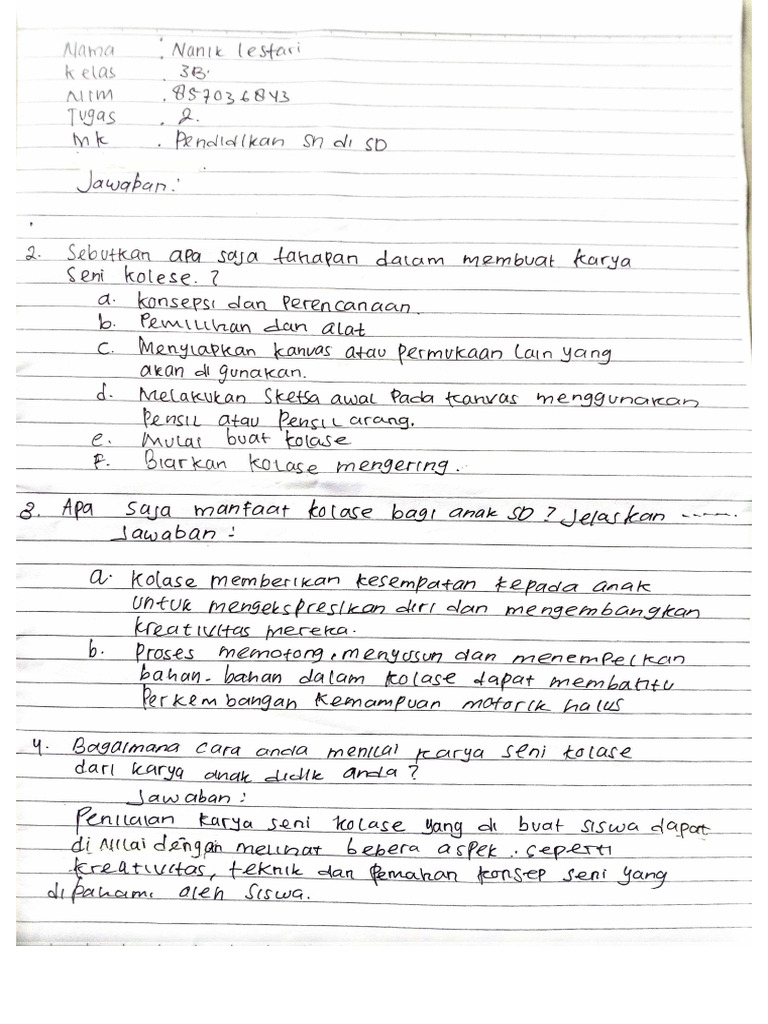 Nama : Nanik lestari
Kelas . 3B.
NIM . 857036843
Tugas . 2.
Mk . Pendidikan sn di SD
Jawaban :
2. Sebutkan apa saja tahapan dalam membuat karya
seni kolese. ?
a. konsepsi dan perencanaan.
b. Pemilihan dan alat
c. Menyiapkan kanvas atau permukaan lain yang
akan di gunakan.
d. Melakukan sketsa awal pada kanvas menggunakan
pensil atau pensil arang.
e. Mulai buat kolase
f. Biarkan kolase mengering.
3. Apa saja manfaat kolase bagi anak SD ? Jelaskan ......
Jawaban :
a. kolase memberikan kesempatan kepada anak
untuk mengekspresikan diri dan mengembangkan
kreativitas mereka.
b. proses memotong, menyusun dan menempelkan
bahan-bahan dalam kolase dapat membantu
perkembangan kemampuan motorik halus
4. Bagaimana cara anda menilai karya seni kolase
dari karya anak didik anda ?
Jawaban :
Penilaian karya seni kolase yang di buat siswa dapat
di nilai dengan melihat bebera aspek. seperti
kreativitas, teknik dan pemahan konsep seni yang
di pahami oleh siswa.